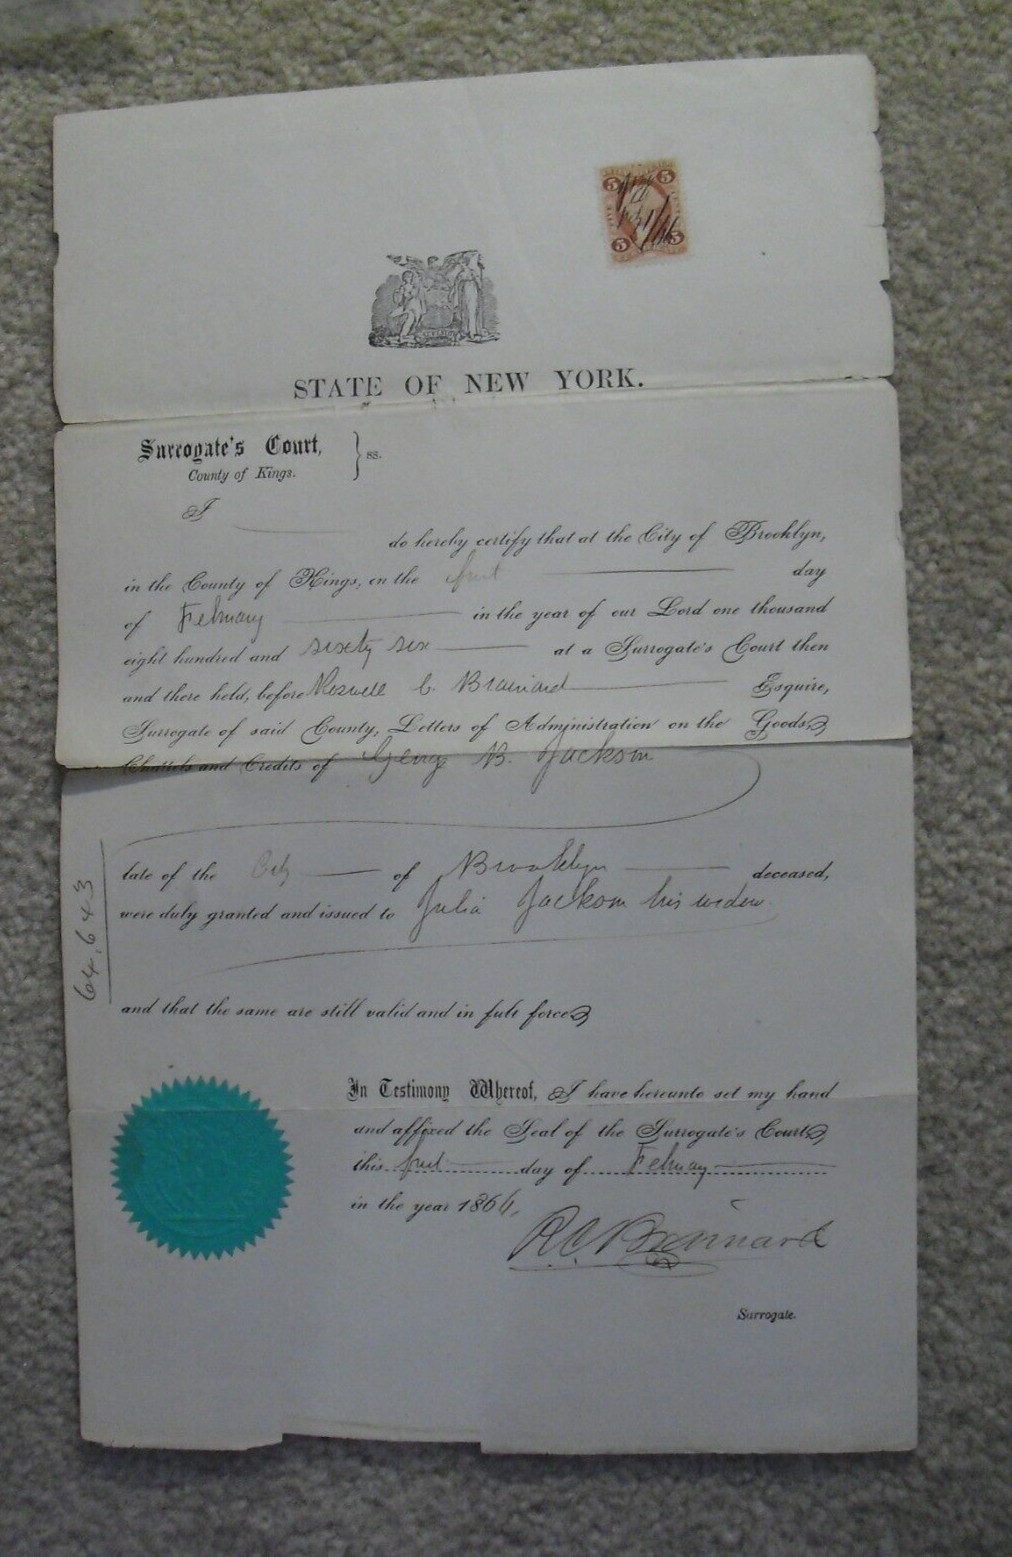 5 5
5 5
STATE OF NEW YORK.
Surrogate's Court,
County of Kings. } ss.
I
do hereby certify that at the City of Brooklyn,
in the County of Kings, on the first day
of February in the year of our Lord one thousand
eight hundred and sixty six at a Surrogate's Court then
and there held, before Roswell C. Brainard Esquire,
Surrogate of said County, Letters of Administration on the Goods,
Chattels and Credits of George B. Jackson
late of the City of Brooklyn deceased,
were duly granted and issued to Julia Jackson his widow
and that the same are still valid and in full force.
64,643
In Testimony Whereof, I have hereunto set my hand
and affixed the Seal of the Surrogate's Court,
this first day of February
in the year 1866,
R.C. Brainard
Surrogate.